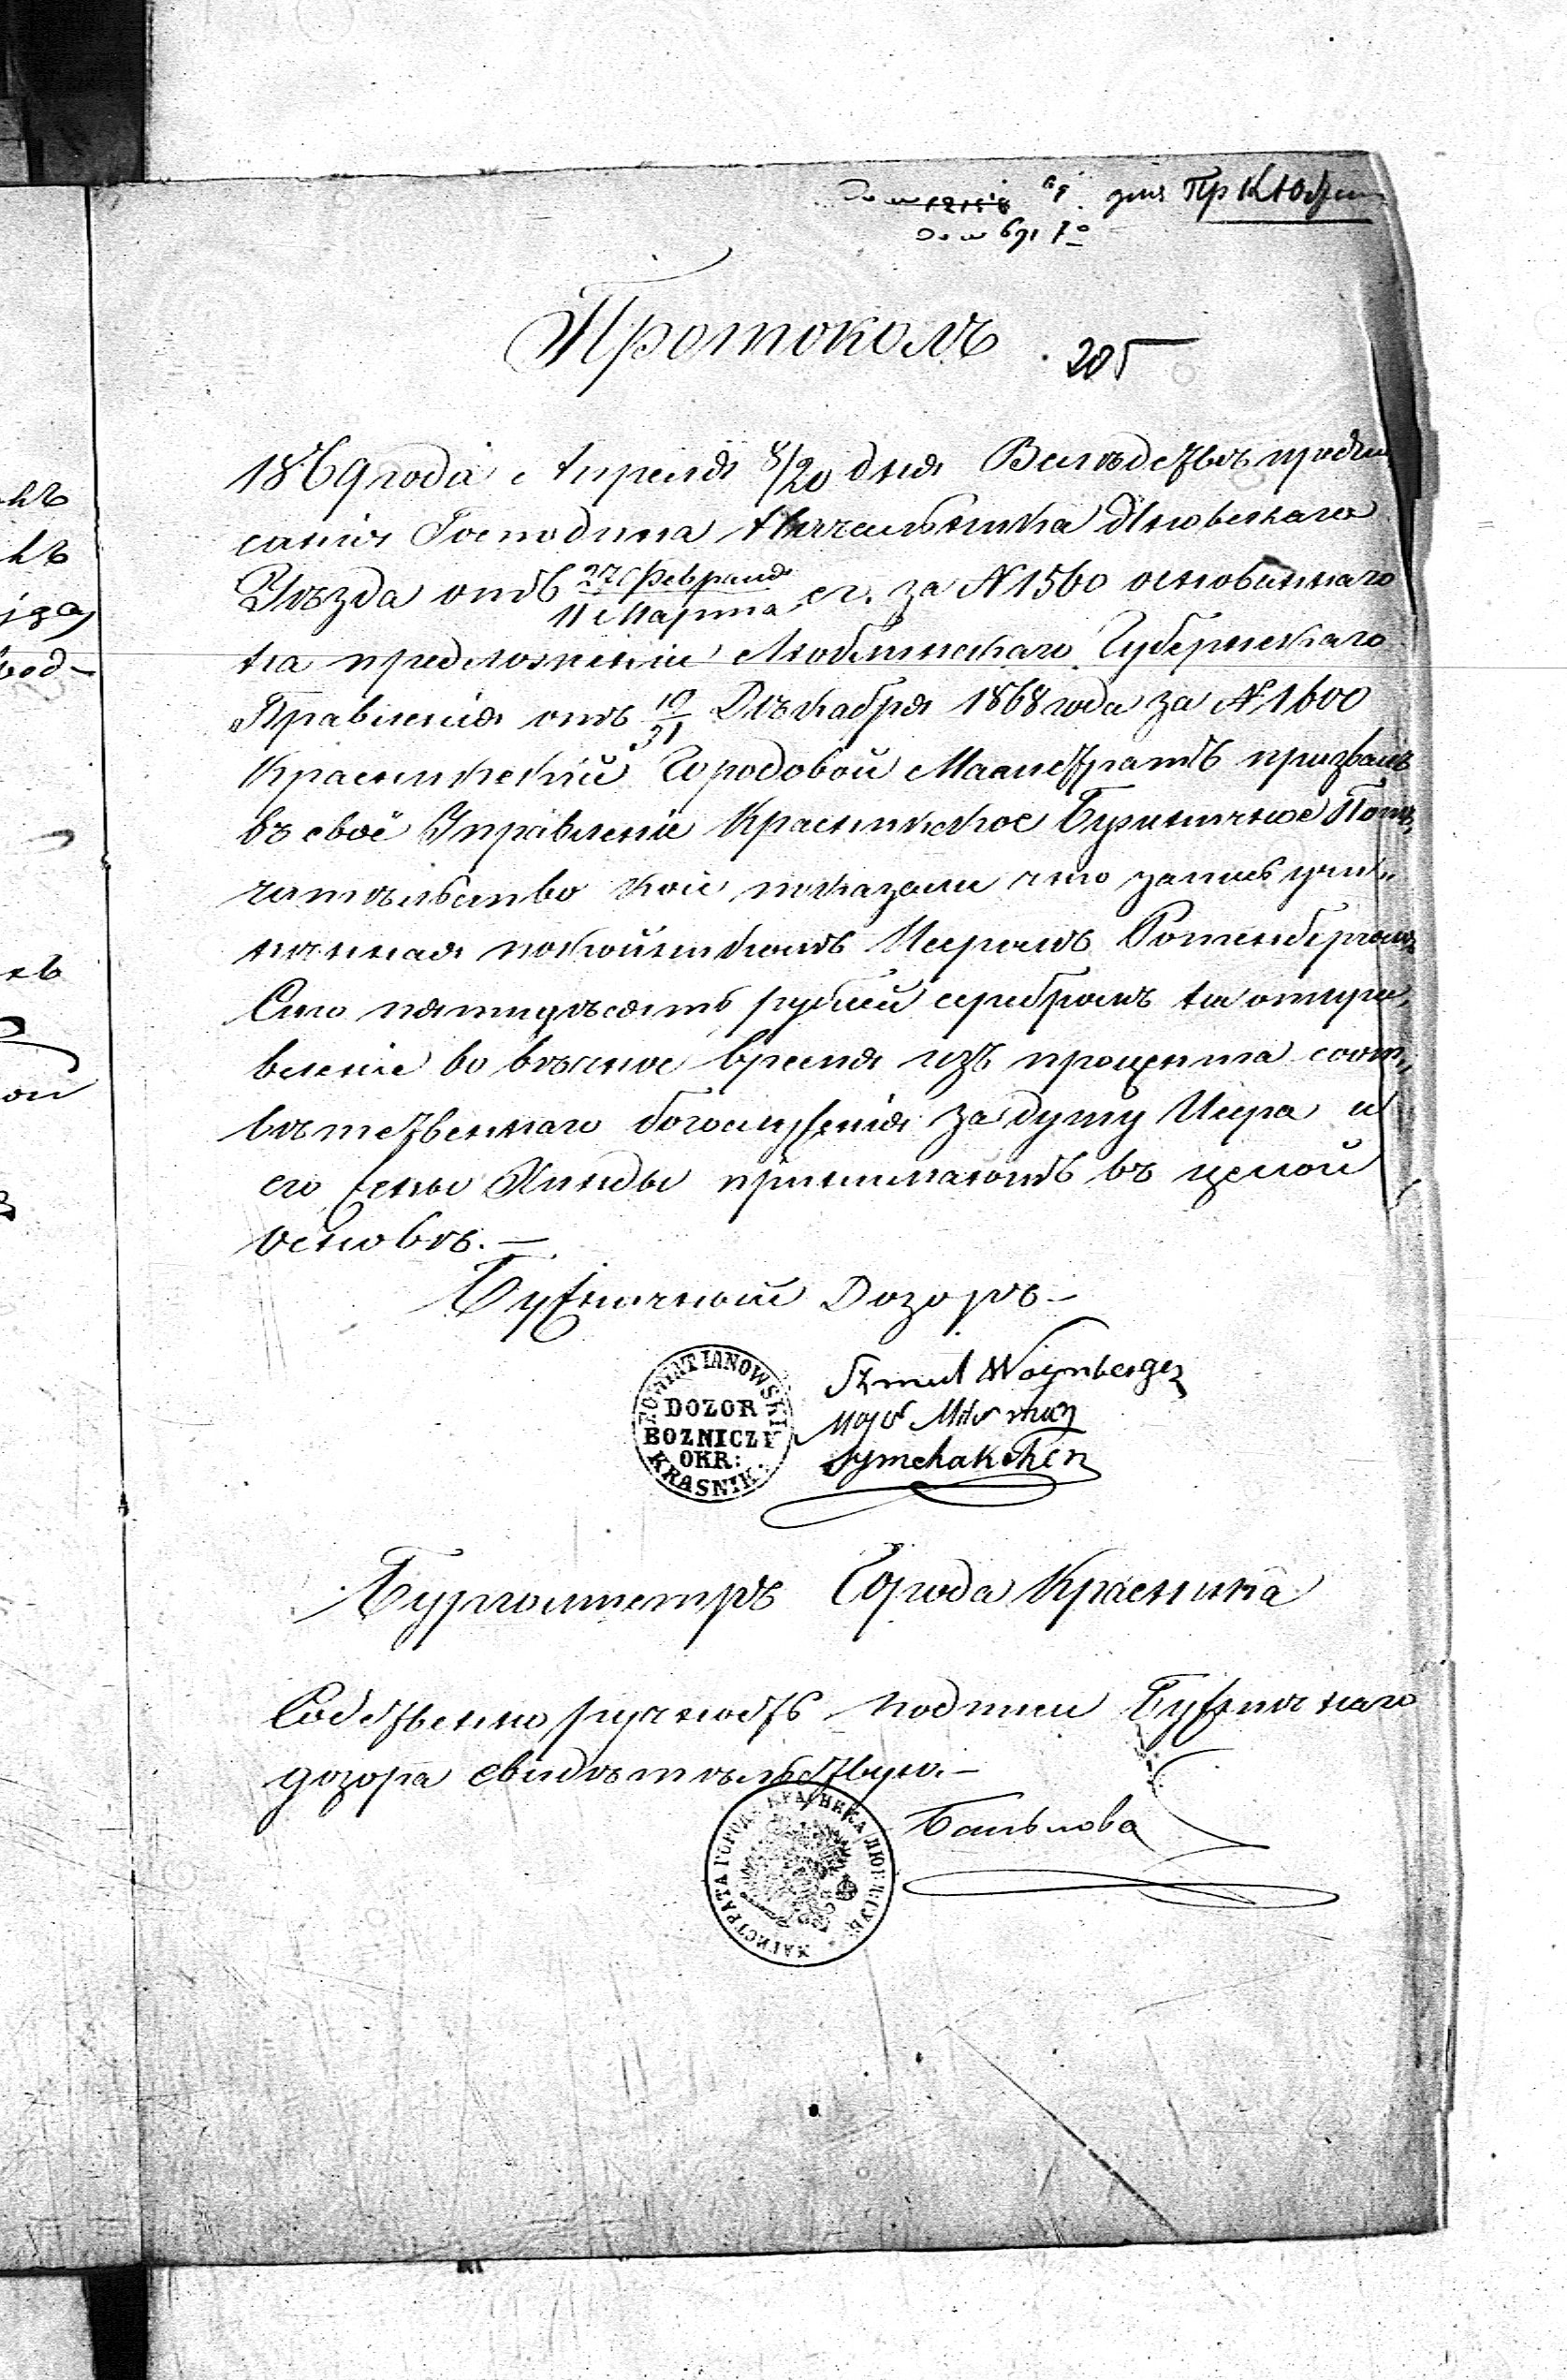 Протоколъ 205
1869 года Апреля 8/20 дня Вслѣдствъ предпи
санія Господина Начальника Яновскаго
Уѣзда отъ 27 Февраля / 11 Марта с. г. за N 1560 основаннаго
на предложеніи Люблинскаго Губернскаго
Правленія отъ 19/31 Дѣкабря 1868 года за N 1600
Красникскій Городовой Магистратъ призвалъ
въ своё Управленіе Красникское Бужничное Попѣ„
чительство кои показали что запись учи„
ненная покойникомъ Исромъ Ротенбергомъ
Сто пятидѣсять рублей серебромъ на отпра„
вленіе во вѣчное время изъ процента соот„
вѣтственнаго богослуженія за душу Исра и
его жены Хинды принимаютъ въ целой
основѣ. —
Бужничной Дозоръ —
POWIAT IANOWSKI
DOZOR
BOZNICZY
OKR:
KRASNIK.
Szmul Waynberger
Symchakohen
Бургомистръ Города Красника
Собственноручность подписи Бужничнаго
дозора свидѣтѣльствую. —
МАГИСТРАТА ГОРОДА КРАСНИКА ЛЮБ: ГУБ: